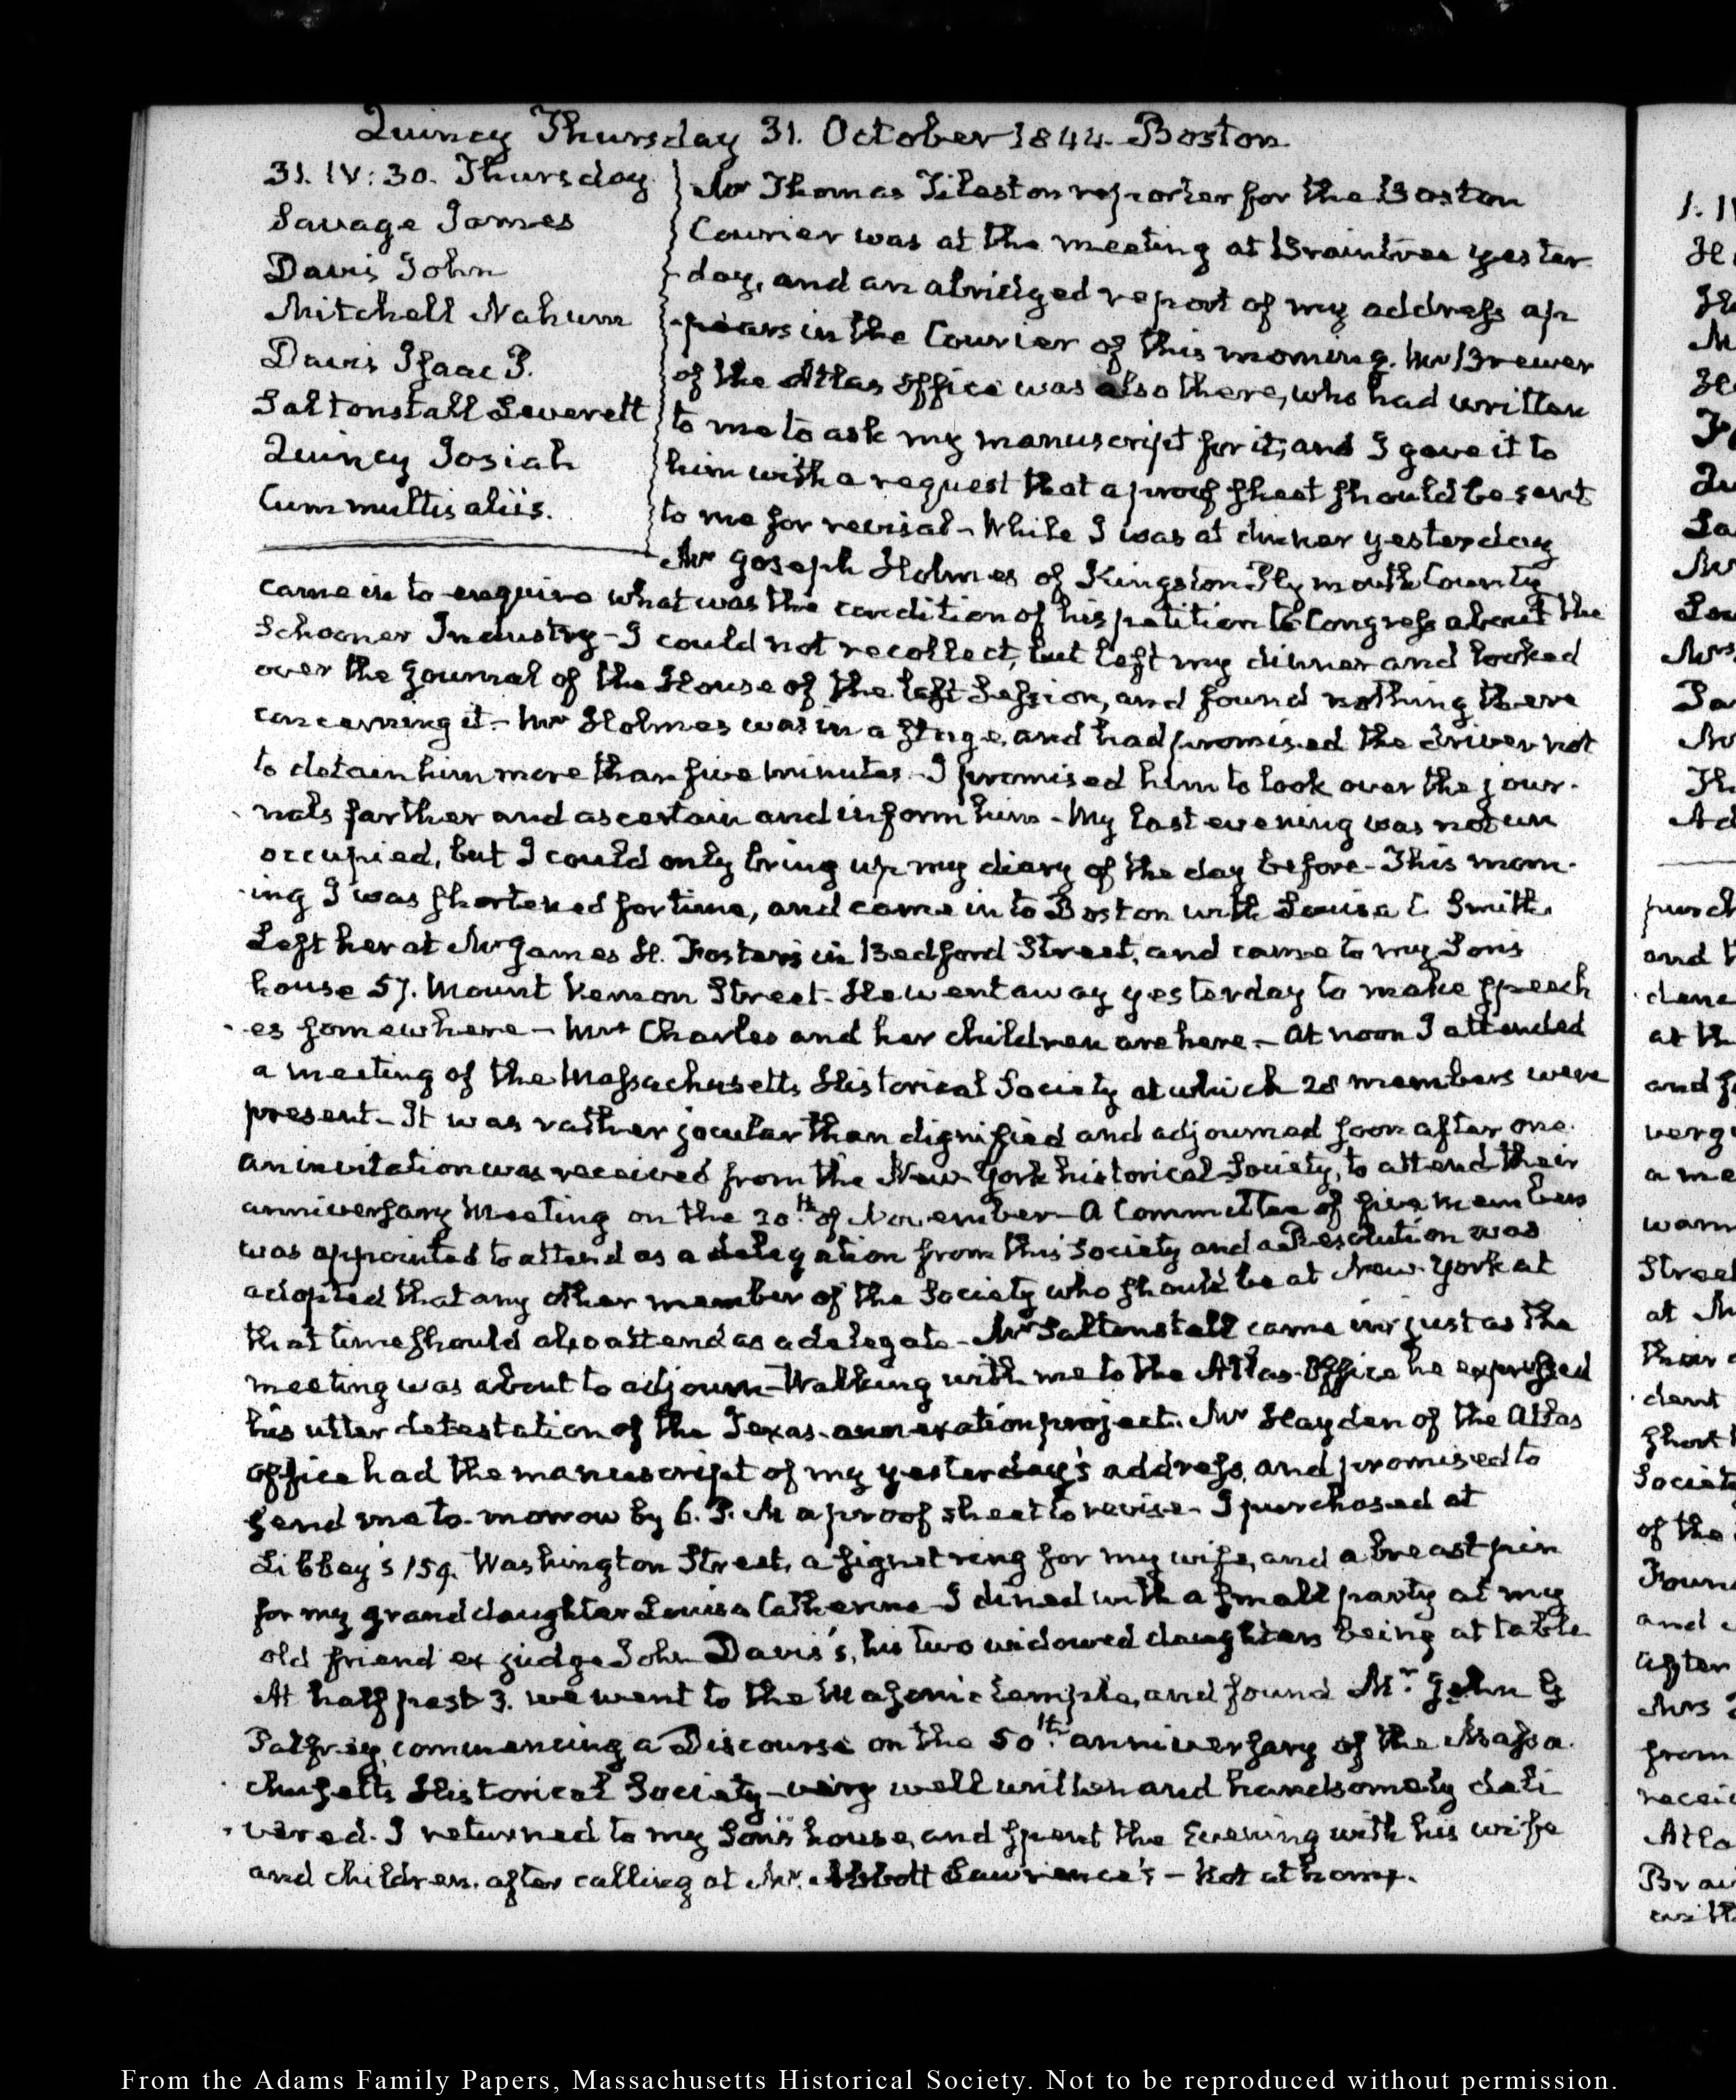 Quincy Thursday 31. October 1844. Boston
31. IV: 30. Thursday
Savage James
Davis John
Mitchell Nahum
Davis Isaac P.
Saltonstall Leverett
Quincy Josiah
Cum multis aliis.
Mr Thomas Tileston reporter for the Boston
Courier was at the meeting at Braintree yester
day, and an abridged report of my address ap
pears in the Courier of this morning. Mr Brewer
of the Atlas Office was also there, who had written
to me to ask my manuscript for it; and I gave it to
him with a request that a proof sheet should be sent
to me for revisal – While I was at dinner yesterday
Mr Joseph Holmes of Kingston Plymouth County
came in to enquire what was the condition of his petition to Congress about the
Schooner Industry – I could not recollect, but left my dinner and looked
over the Journal of the House of the last Session, and found nothing there
concerning it – Mr Holmes was in a Stage, and had promised the driver not
to detain him more than five minutes – I promised him to look over the jour-
nals farther and ascertain and inform him – My last evening was not un
occupied, but I could only bring up my diary of the day before – This morn-
ing I was shortened for time, and came in to Boston with Louisa C. Smith.
Left her at Mr James H. Foster's in Bedford Street, and came to my Sons
house 57. Mount Vernon Street – He went away yesterday to make speech
es somewhere – Mrs Charles and her children are here – At noon I attended
a meeting of the Massachusetts Historical Society at which 28 members were
present – It was rather jocular than dignified and adjourned soon after one.
An invitation was received from the New-York historical Society, to attend their
anniversary Meeting on the 20th. of November – A Committee of five members
was appointed to attend as a delegation from this Society and a Resolution was
adopted that any other member of the Society who should be at New-York at
that time should also attend as a delegate – Mr Saltonstall came in just as the
meeting was about to adjourn – Walking with me to the Atlas-Office he expressed
his utter detestation of the Texas-annexation project. Mr Hayden of the Atlas
office had the manuscript of my yesterday's address, and promised to
send me to-morrow by 6. P.M a proof sheet to revise – I purchased at
Libbey's 159. Washington Street, a signet ring for my wife, and a breast pin
for my granddaughter Louisa Catherine – I dined with a small party at my
old friend ex judge John Davis's, his two widowed daughters being at table
At half past 3. we went to the Masonic temple, and found Mr. John G
Palfrey, commencing a Discourse on the 50th. anniversary of the Massa-
chusetts Historical Society – very well written and handsomely deli
vered. I returned to my Son's house, and spent the Evening with his wife
and children, after calling at Mr. Abbott Lawrence's – Not at home.
1. I
and
at the
and
a me
Street
at
dent
short
Societ
of the
and
after
Mrs
from
recei
Atla
Brai
with
From the Adams Family Papers, Massachusetts Historical Society. Not to be reproduced without permission.